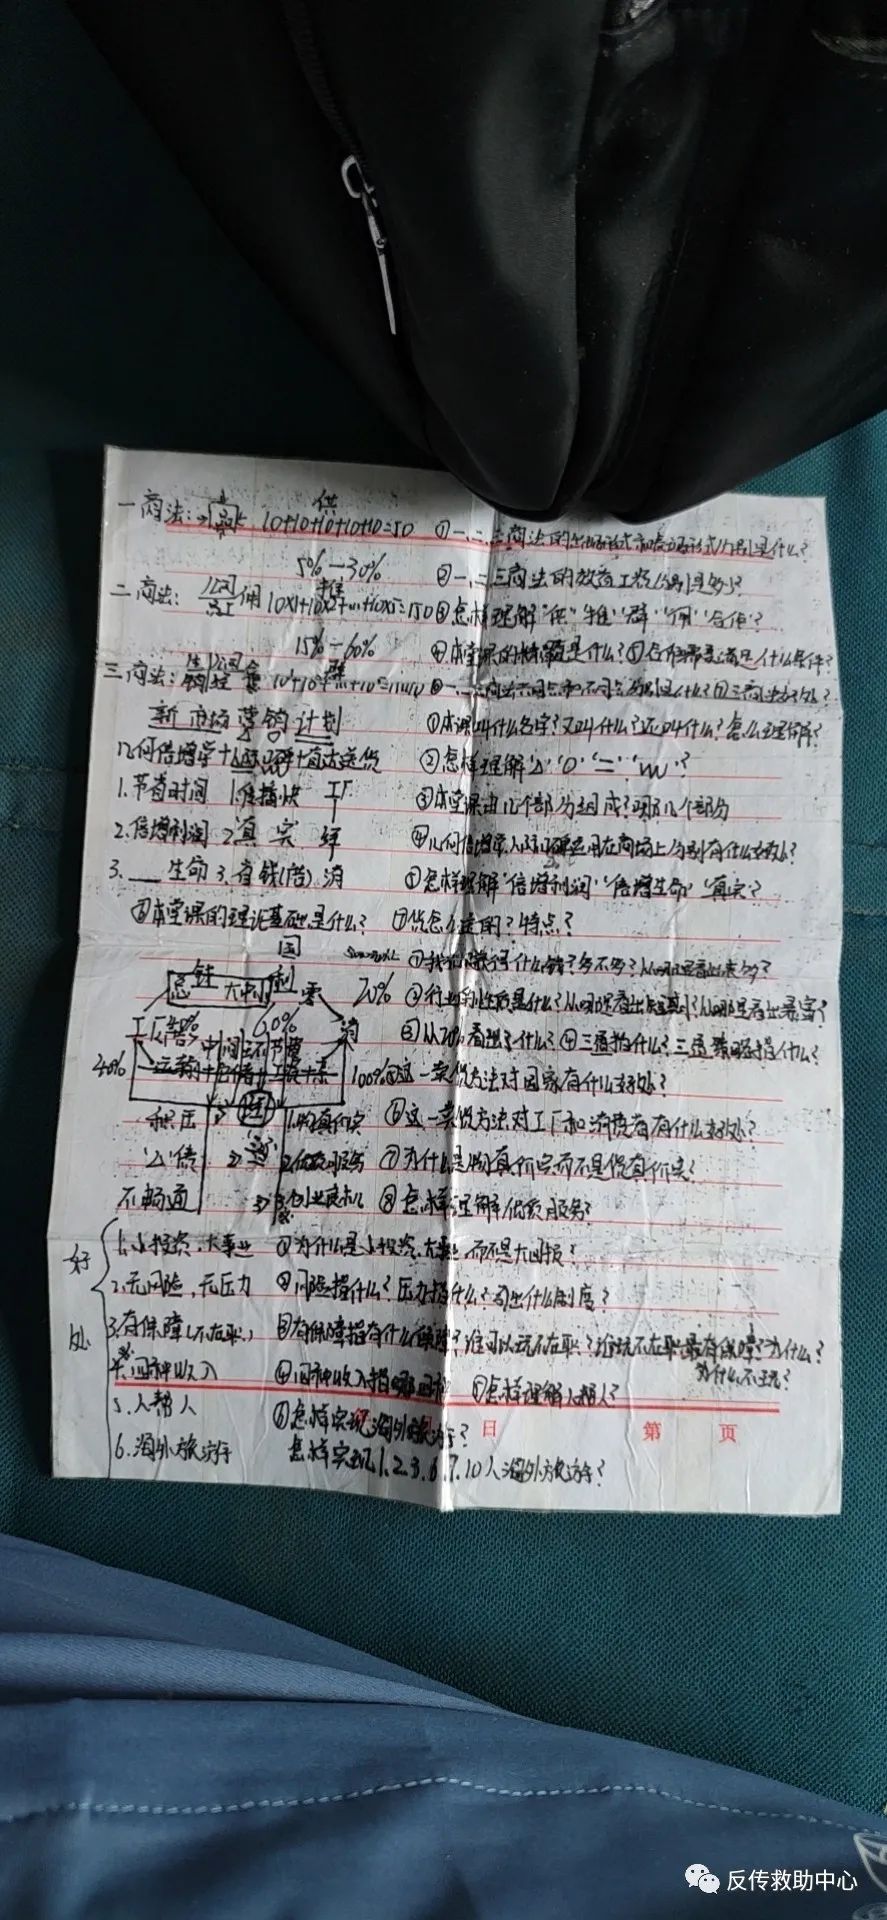 一商法: 供
10+10+10+10+10=50 ①一、二、三商法的 形式和 形式分别是什么?
5%—30% ②一、二三商法的效益工资分别是多少?
二商法: 公司 员工 佣 推 10X1+10X2+…+10X5=150 ③怎样理解"供""推""群""佣""合作"?
15%—60% ④本堂课的 是什么?⑤合作需要满足什么条件?
三商法: 公司 群 ⑥一、二三商法共同点和不同点分别是什么?⑦三商法好处?
新市场营销计划 ①本课叫什么名字?又叫什么?还叫什么?怎么理解?
几何倍增学+人际 学+直达送货 ②怎样理解
1.节省时间 1.传播快 工厂 ③本堂课由几个部分组成?哪几个部分
2.倍增利润 2.真实 ④几何倍增学、人际 学运用在商场上分别有什么好处?
3. 生命 3.省钱(借) 消 ⑤怎样理解"倍增利润""倍增生命""真实"?
⑥本堂课的理论基础是什么? ⑦货怎么走的?特点?
国 ①我们赚得什么钱?多不多?从哪里看出来多?
总 大中小 零 20% ②行业的性质是什么?从哪里看出短期?从哪里看出暴富?
工厂 40% 60% 消 ③从20%看出了什么?④三通指什么?三通策略指什么?
中间环节费
40% 运费+仓储+工资+ 100% ⑤这一卖货方法对国家有什么好处?
积压 1.物真价实 ⑥这一卖货方法对工厂和消费者有什么好处?
"公"债 2.优质服务 ⑦为什么是物真价实而不是货真价实?
不畅通 3.创业良机 ⑧怎样理解优质服务?
好处
1.小投资、大事业 ①为什么是小投资、大事业而不是大回报?
2.无风险,无压力 ②风险指什么?压力指什么?写出什么制度?
3.有保障(不在职) ③有保障指有什么保障?谁可以玩不在职?谁玩不在职最有保障?为什么?
为什么不玩?
4.四种收入 ④四种收入指哪四种 ⑤怎样理解人帮人?
5.人帮人 ⑥怎样实现海外旅游?
日 第 页
6.海外旅游 怎样实现1.2.3.6.7.10人海外旅游?
反传救助中心